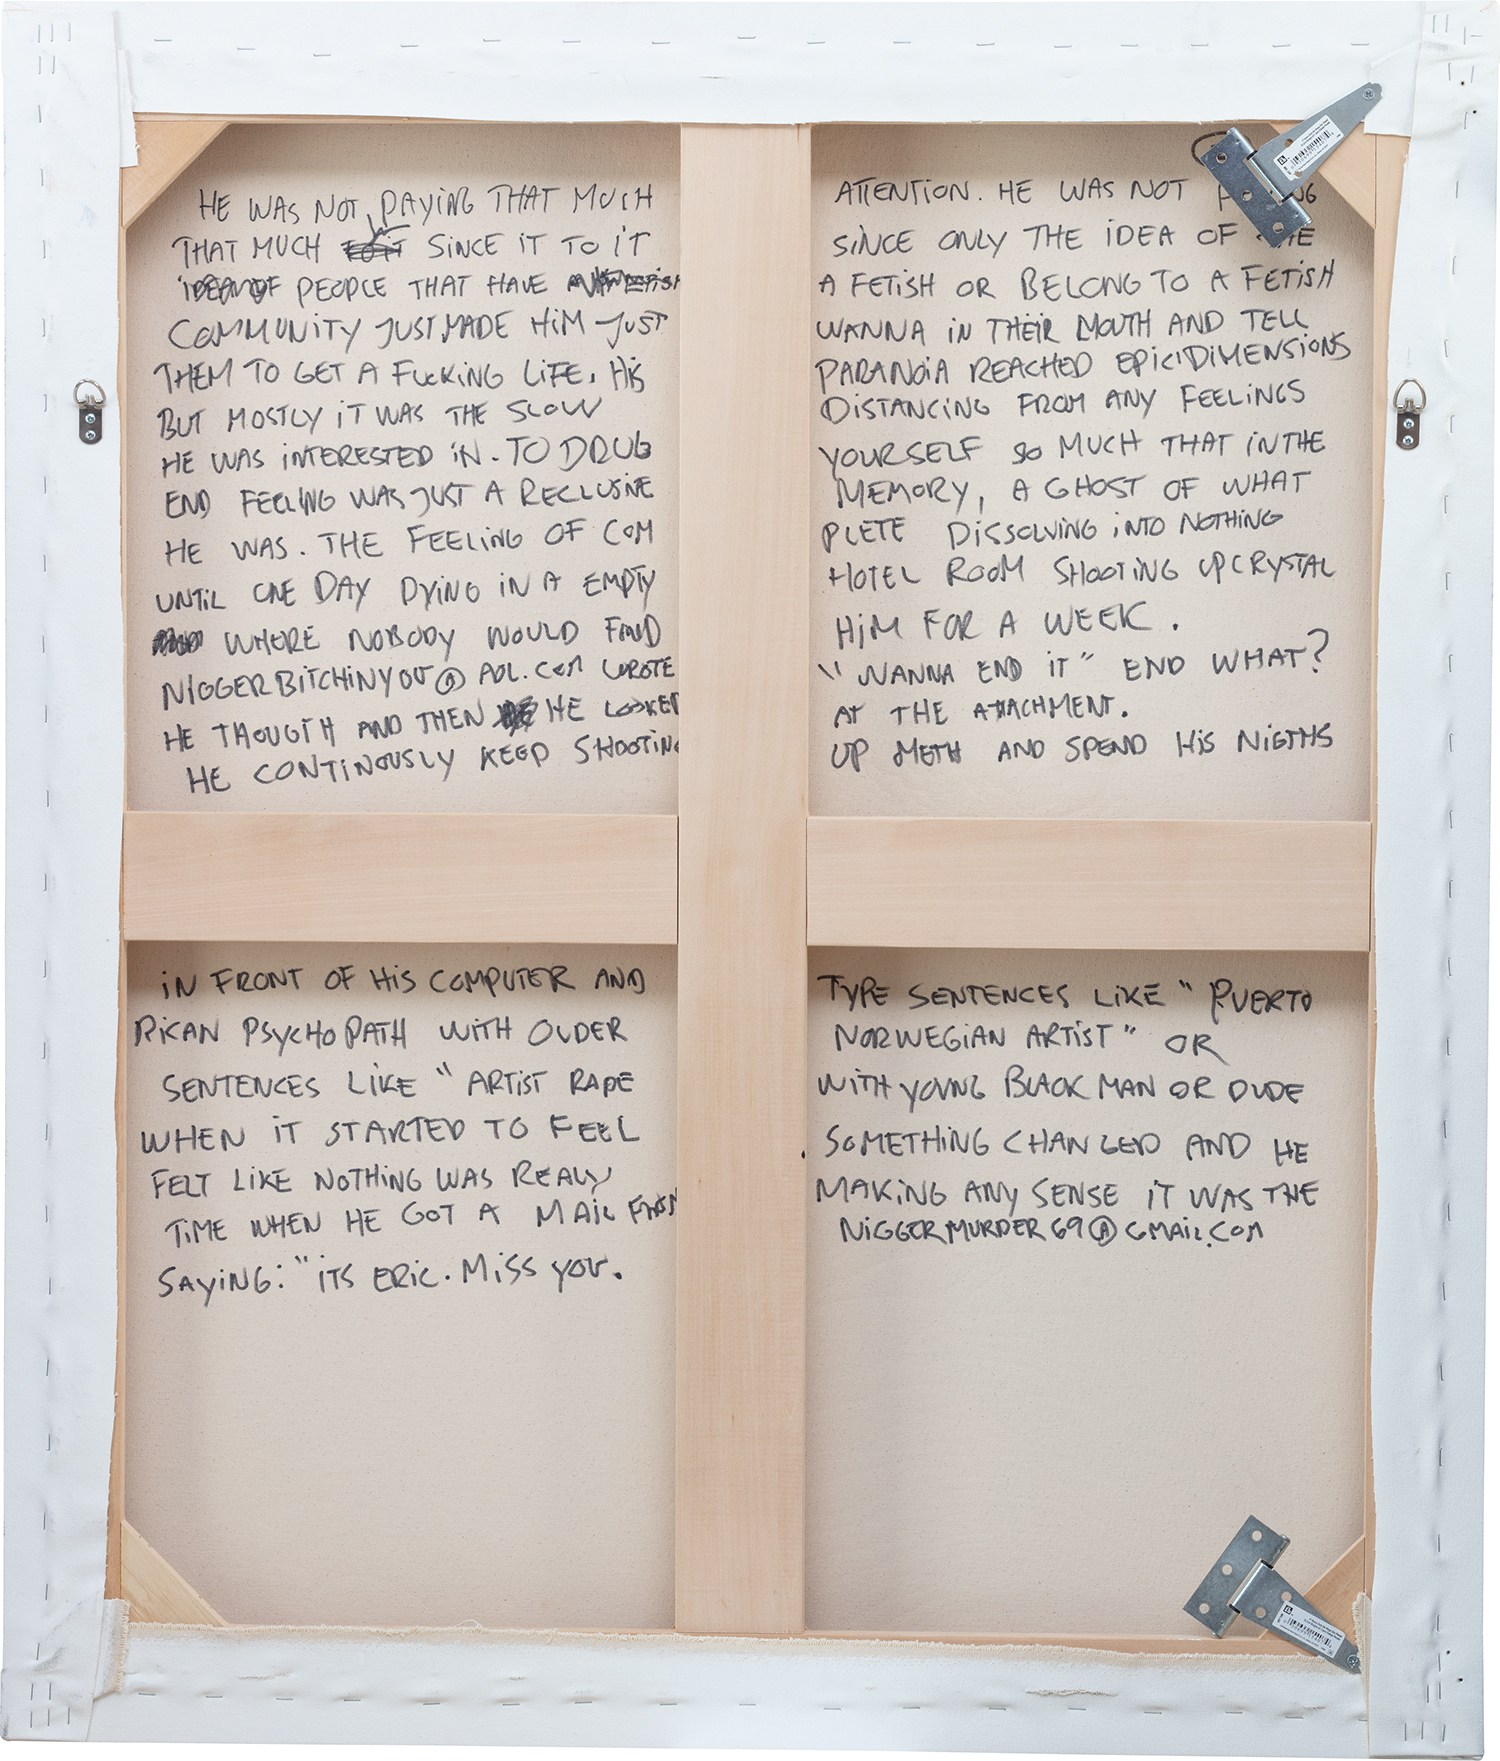 HE WAS NOT PAYING THAT MUCH ATTENTION. HE WAS NOT
THAT MUCH SINCE IT TO IT SINCE ONLY THE IDEA OF
IDEA OF PEOPLE THAT HAVE A FETISH OR BELONG TO A FETISH
COMMUNITY JUST MADE HIM JUST WANNA IN THEIR MOUTH AND TELL
THEM TO GET A FUCKING LIFE. HIS PARANOIA REACHED EPIC DIMENSIONS
BUT MOSTLY IT WAS THE SLOW DISTANCING FROM ANY FEELINGS
HE WAS INTERESTED IN. TO DRUG YOURSELF SO MUCH THAT IN THE
END FEELING WAS JUST A RECLUSIVE MEMORY, A GHOST OF WHAT
HE WAS. THE FEELING OF COM PLETE DISSOLVING INTO NOTHING
UNTIL ONE DAY DYING IN A EMPTY HOTEL ROOM SHOOTING UP CRYSTAL
WHERE NOBODY WOULD FIND HIM FOR A WEEK.
NIGGERBITCHINYOU@AOL.COM WROTE "WANNA END IT" END WHAT?
HE THOUGTH AND THEN HE LOOKED AT THE ATTACHMENT.
HE CONTINOUSLY KEEP SHOOTING UP METH AND SPEND HIS NIGTHS
IN FRONT OF HIS COMPUTER AND TYPE SENTENCES LIKE "PUERTO
RICAN PSYCHOPATH WITH OLDER NORWEGIAN ARTIST" OR
SENTENCES LIKE "ARTIST RAPE WITH YOUNG BLACK MAN OR DUDE
WHEN IT STARTED TO FEEL SOMETHING CHANGED AND HE
FELT LIKE NOTHING WAS REALY MAKING ANY SENSE IT WAS THE
TIME WHEN HE GOT A MAIL FROM NIGGERMURDER69@GMAIL.COM
SAYING: "ITS ERIC. MISS YOU.